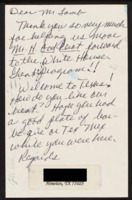 Dear Mr. Lamb
Thank you so very much
for helping us move
Mr. H forward
to the White House
Great program!!
Welcome to Texas!
How do you like our
heat? Hope you had
a good plate of bar-
be-que or Tex Mex
while you were here.
Regards
Houston, TX 77025